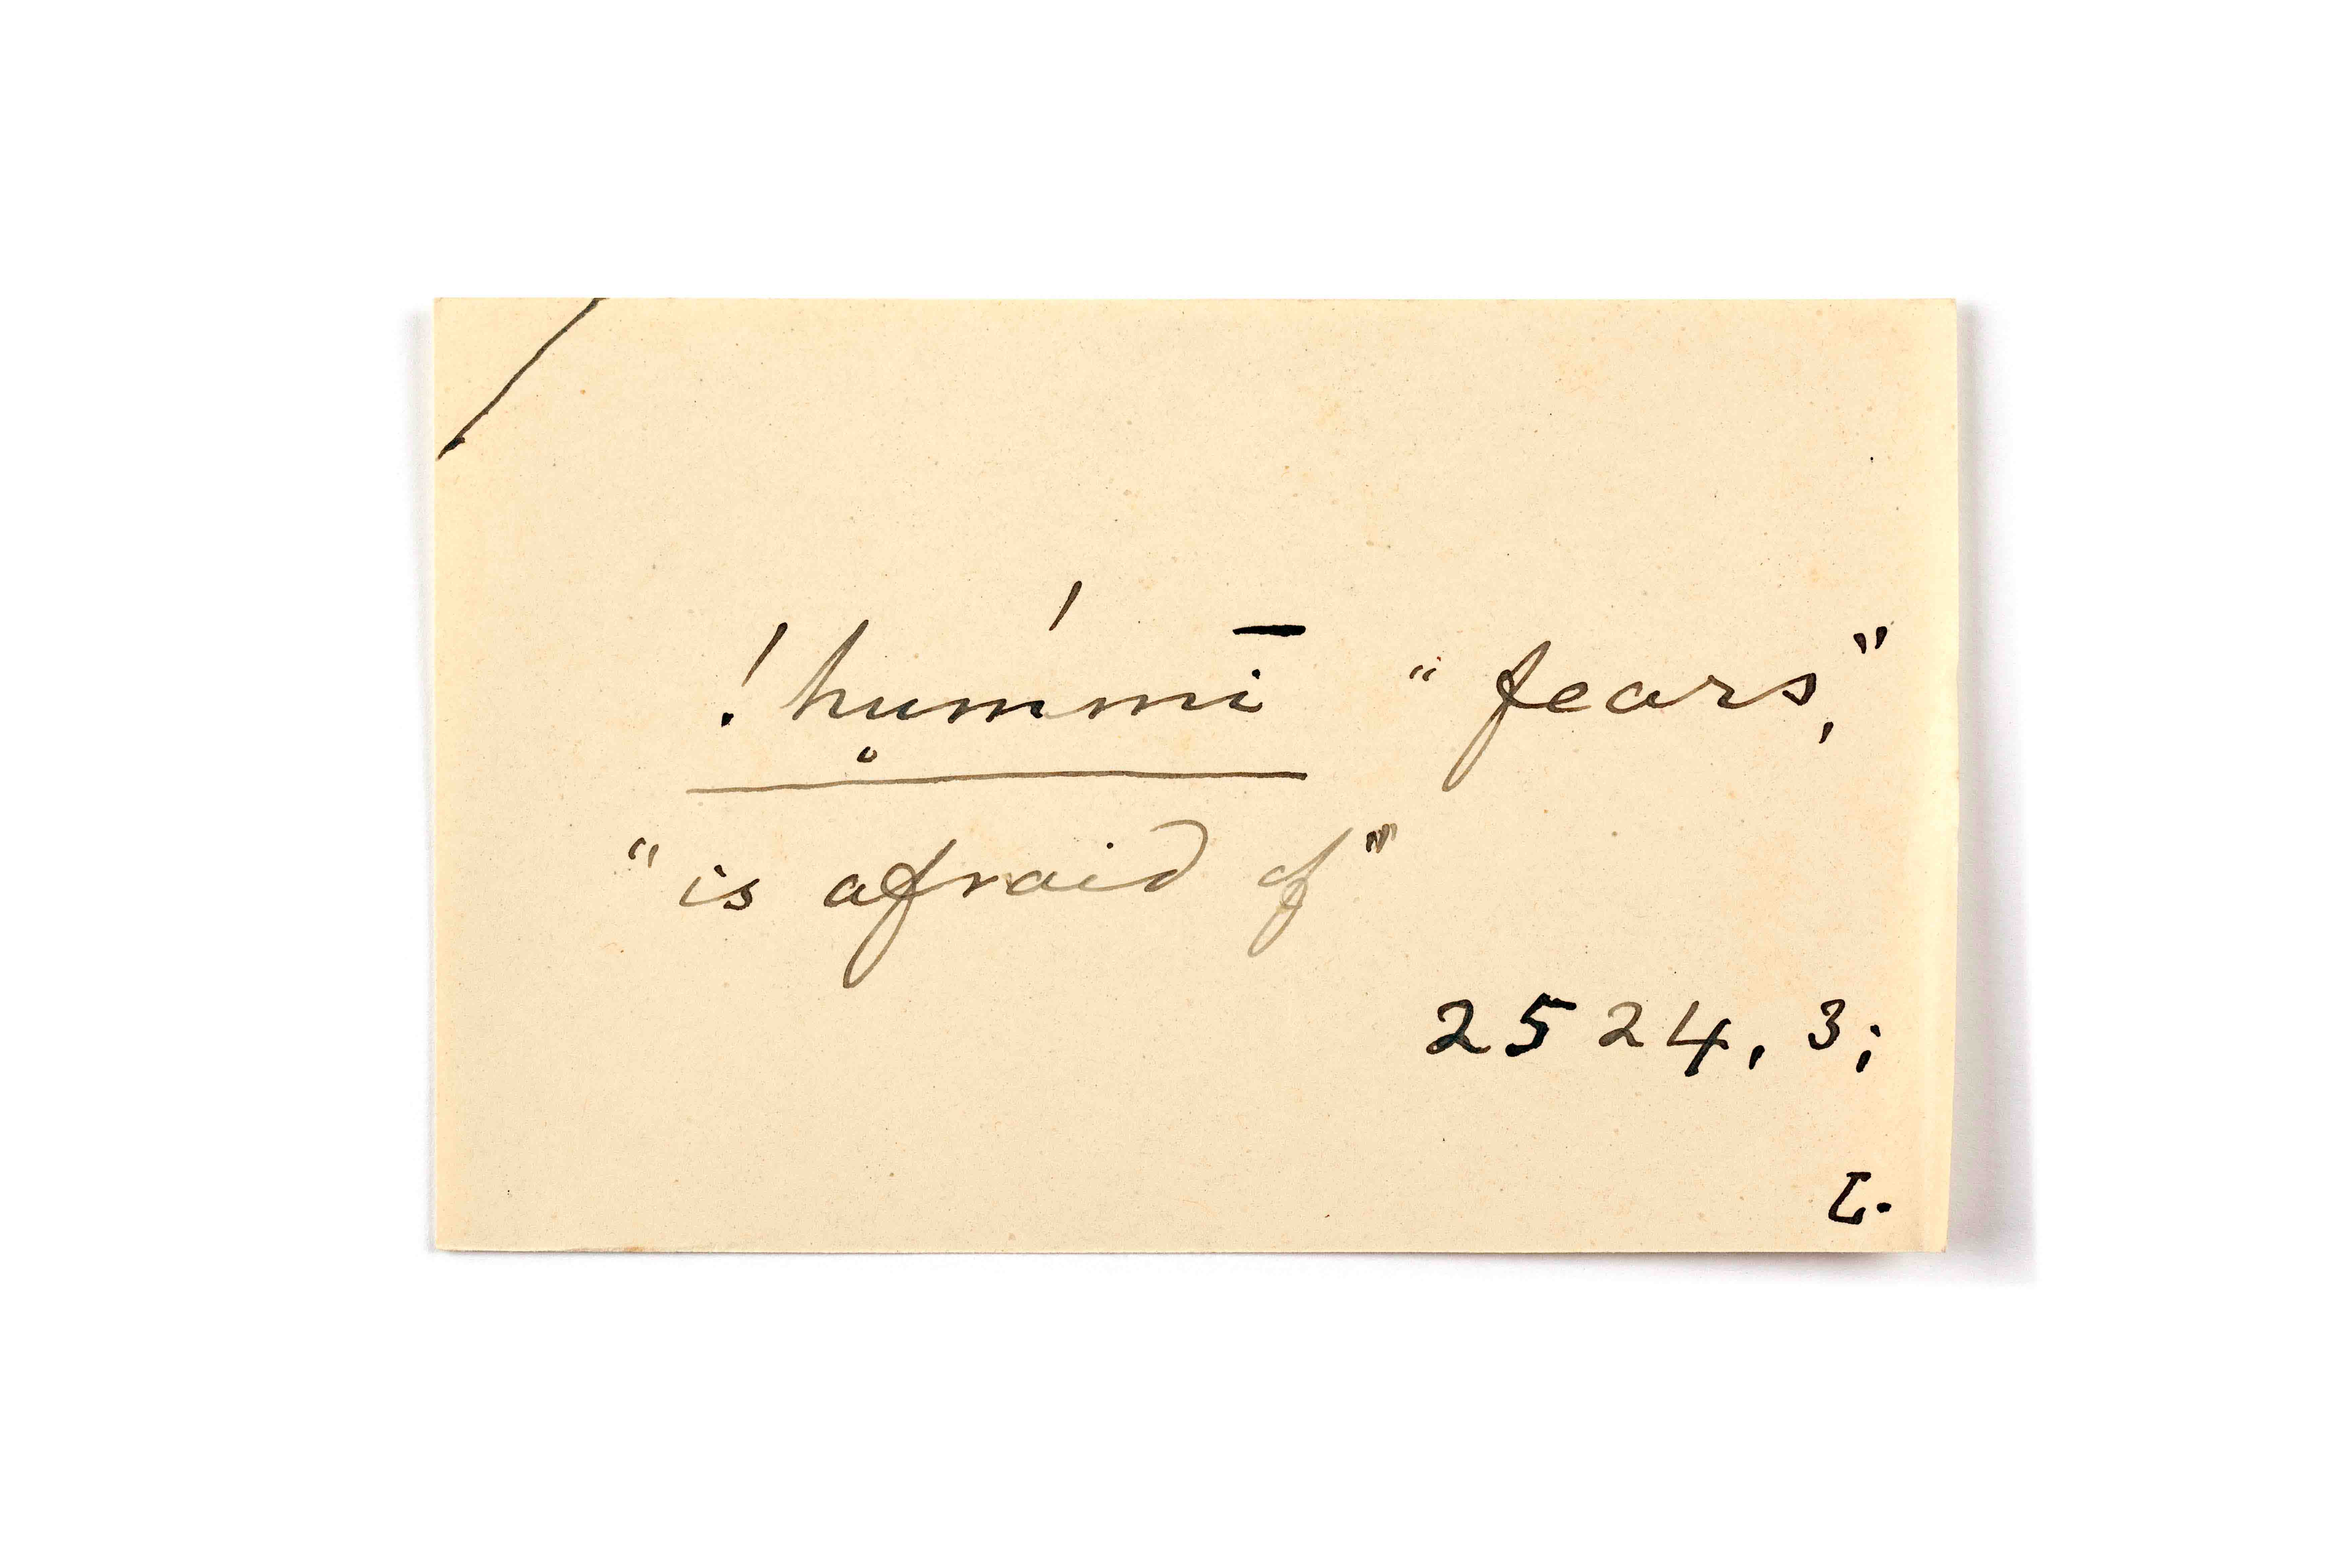 !hu̥mḿī "fears,"
"is afraid of"
2524, 3;
L.